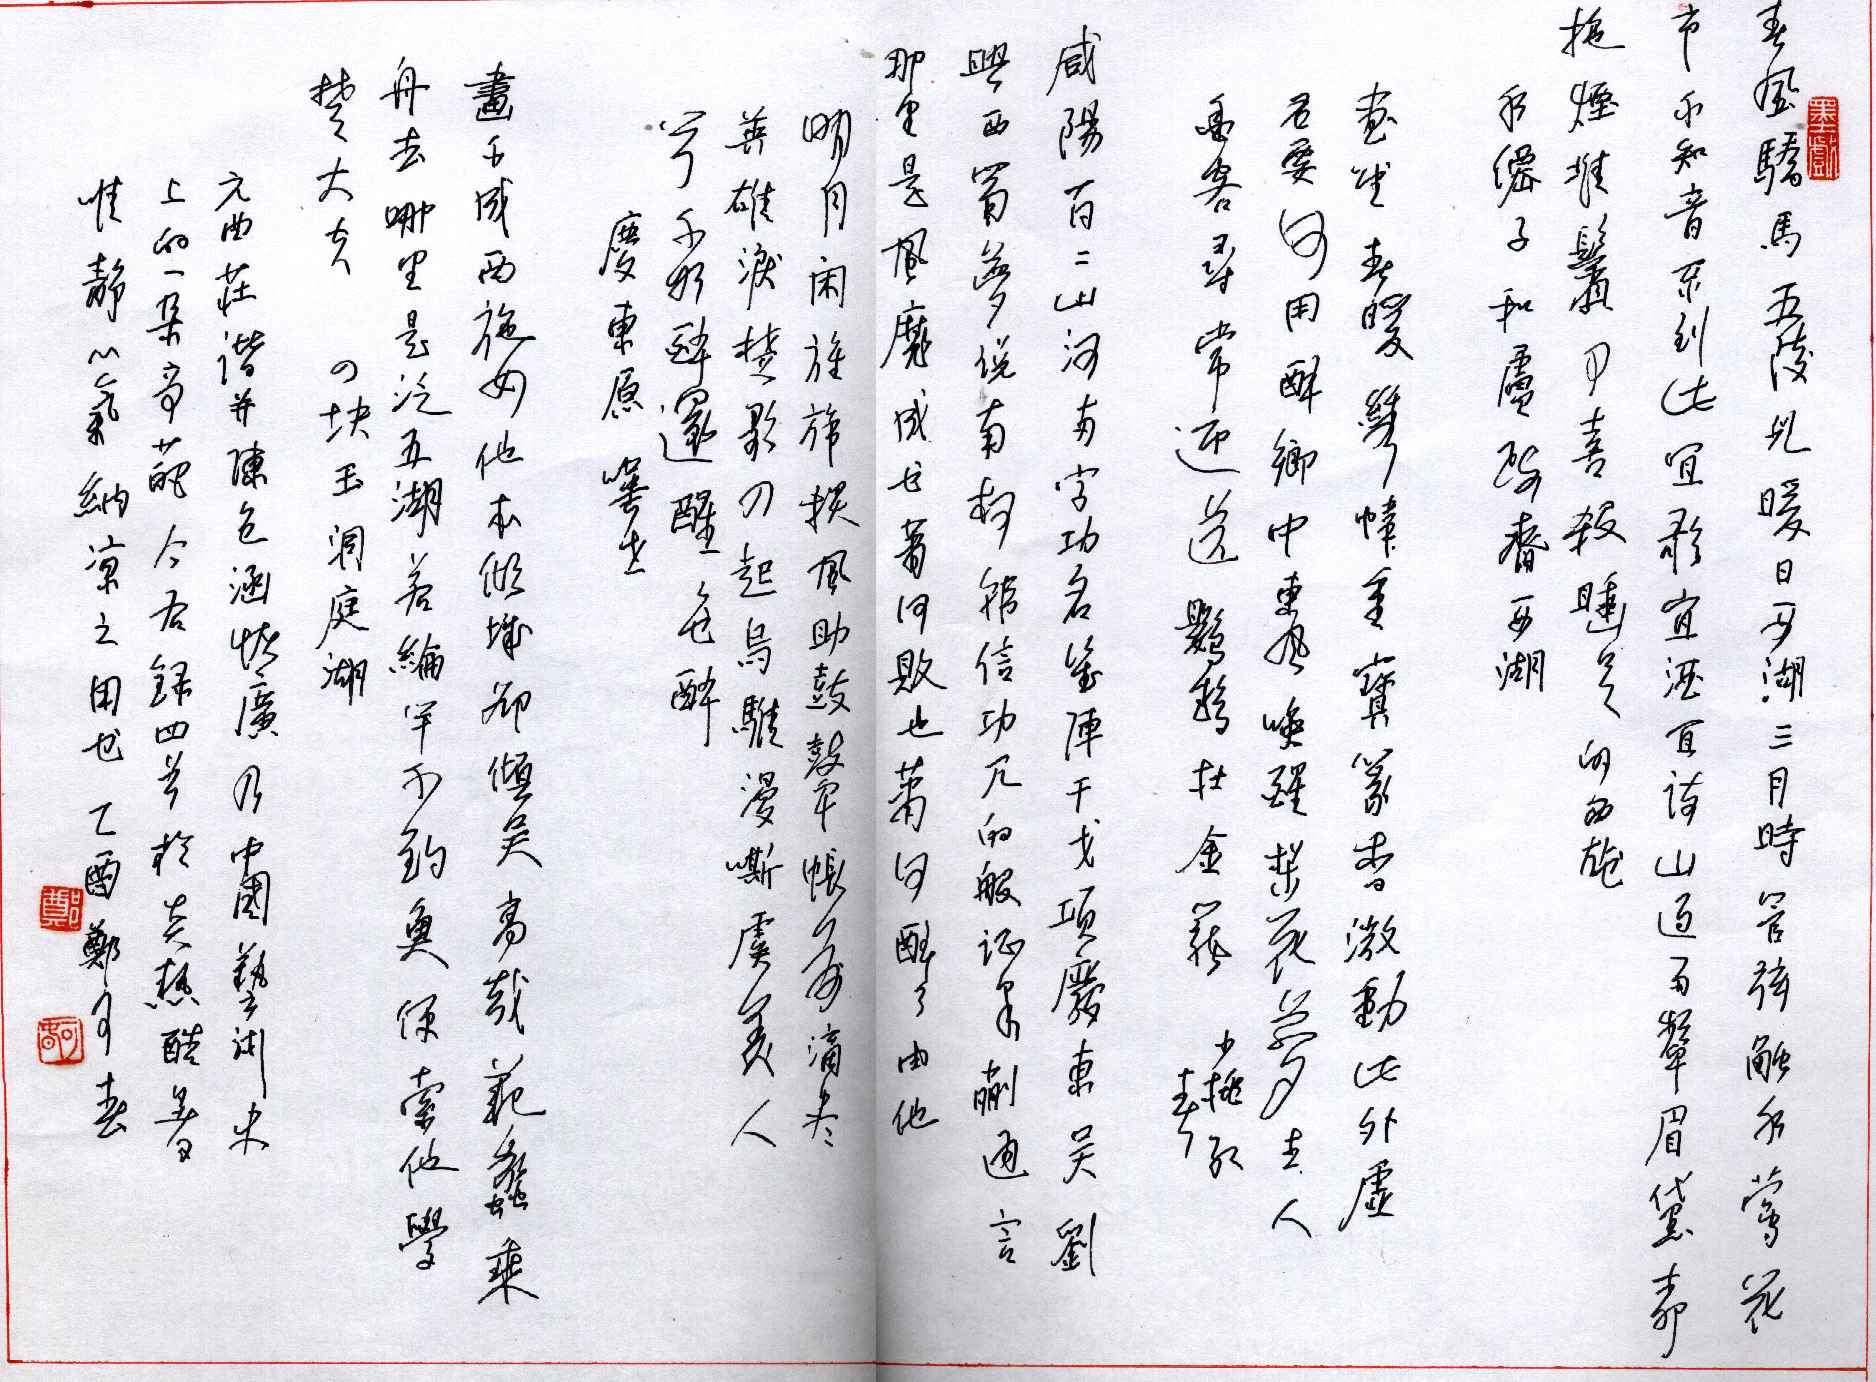 墨戲
春風驕馬五陵兒暖日西湖三月時管弦觸水鶯花
市不知音不到此宜歌宜酒宜詩山過雨顰眉黛柳
拖煙堆鬢絲可喜殺睡足的西施
水僊子和盧疏齋西湖
畫堂春暖繡幃重寶篆香微動此外虛
名要何用醉鄉中東風喚醒梨花夢主人
愛客尋常迎送鸚鵡在金籠 小桃紅
春
咸陽百二山河兩字功名幾陣干戈項廢東吳劉
興西蜀夢說南柯韓信功兀的般証果蒯通言
那里是風魔成也蕭何敗也蕭何醉了由他
明月閑旌旆秋風助鼓鼙帳前滴盡
英雄淚楚歌四起烏騅漫嘶虞美人
兮不如醉還醒醒色醉
慶東原 嘆世
畫不成西施女他本傾城卻傾吳高哉范蠡乘
舟去哪里是泛五湖若綸竿不釣魚便索他學
楚大夫 四塊玉洞庭湖
元曲莊諧并陳色涵情廣乃中國藝術史
上的一朵奇葩今右錄四首於炎熱酷暑
惟靜心氣納涼之用也乙酉鄭 春
鄭